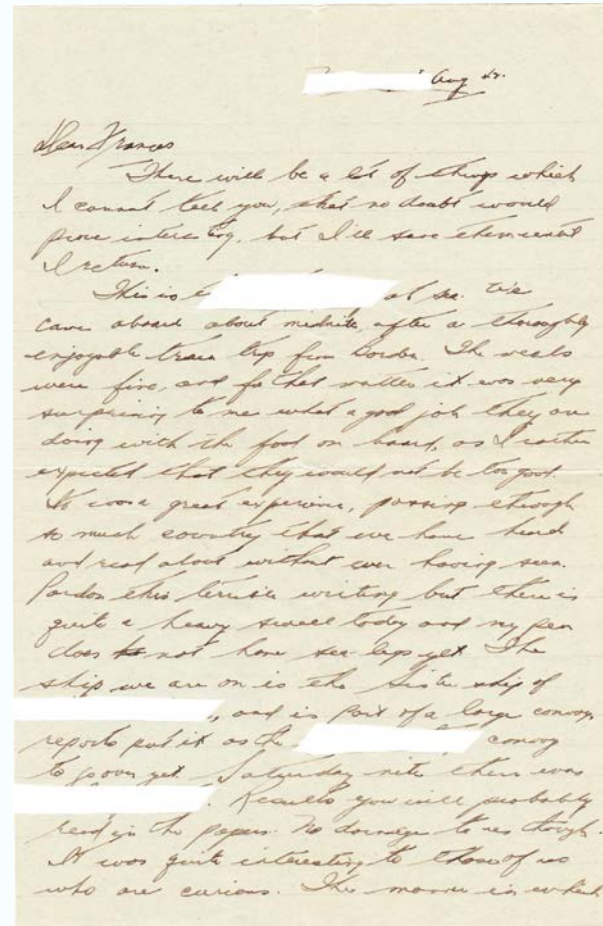 Aug
Dear Frances
There will be a lot of things which
I cannot tell you, that no doubt would
prove interesting, but I'll save them until
I return.
This is at sea. We
came aboard about midnite, after a thoroughly
enjoyable train trip from Borden. The meals
were fine, and for that matter it was very
surprising to me what a good job they are
doing with the food on board, as I rather
expected that they would not be too good.
It was a great experience, passing through
so much country that we have heard
and read about without ever having seen.
Pardon this terrible writing but there is
quite a heavy swell today and my pen
does not have sea legs yet. The
ship we are on is the sister ship of
, and is part of a large convoy,
reports put it as the convoy
to go over yet. Saturday nite there was
. Results you will probably
read in the papers. No damage to us though.
It was quite interesting to those of us
who are curious. The manner in which